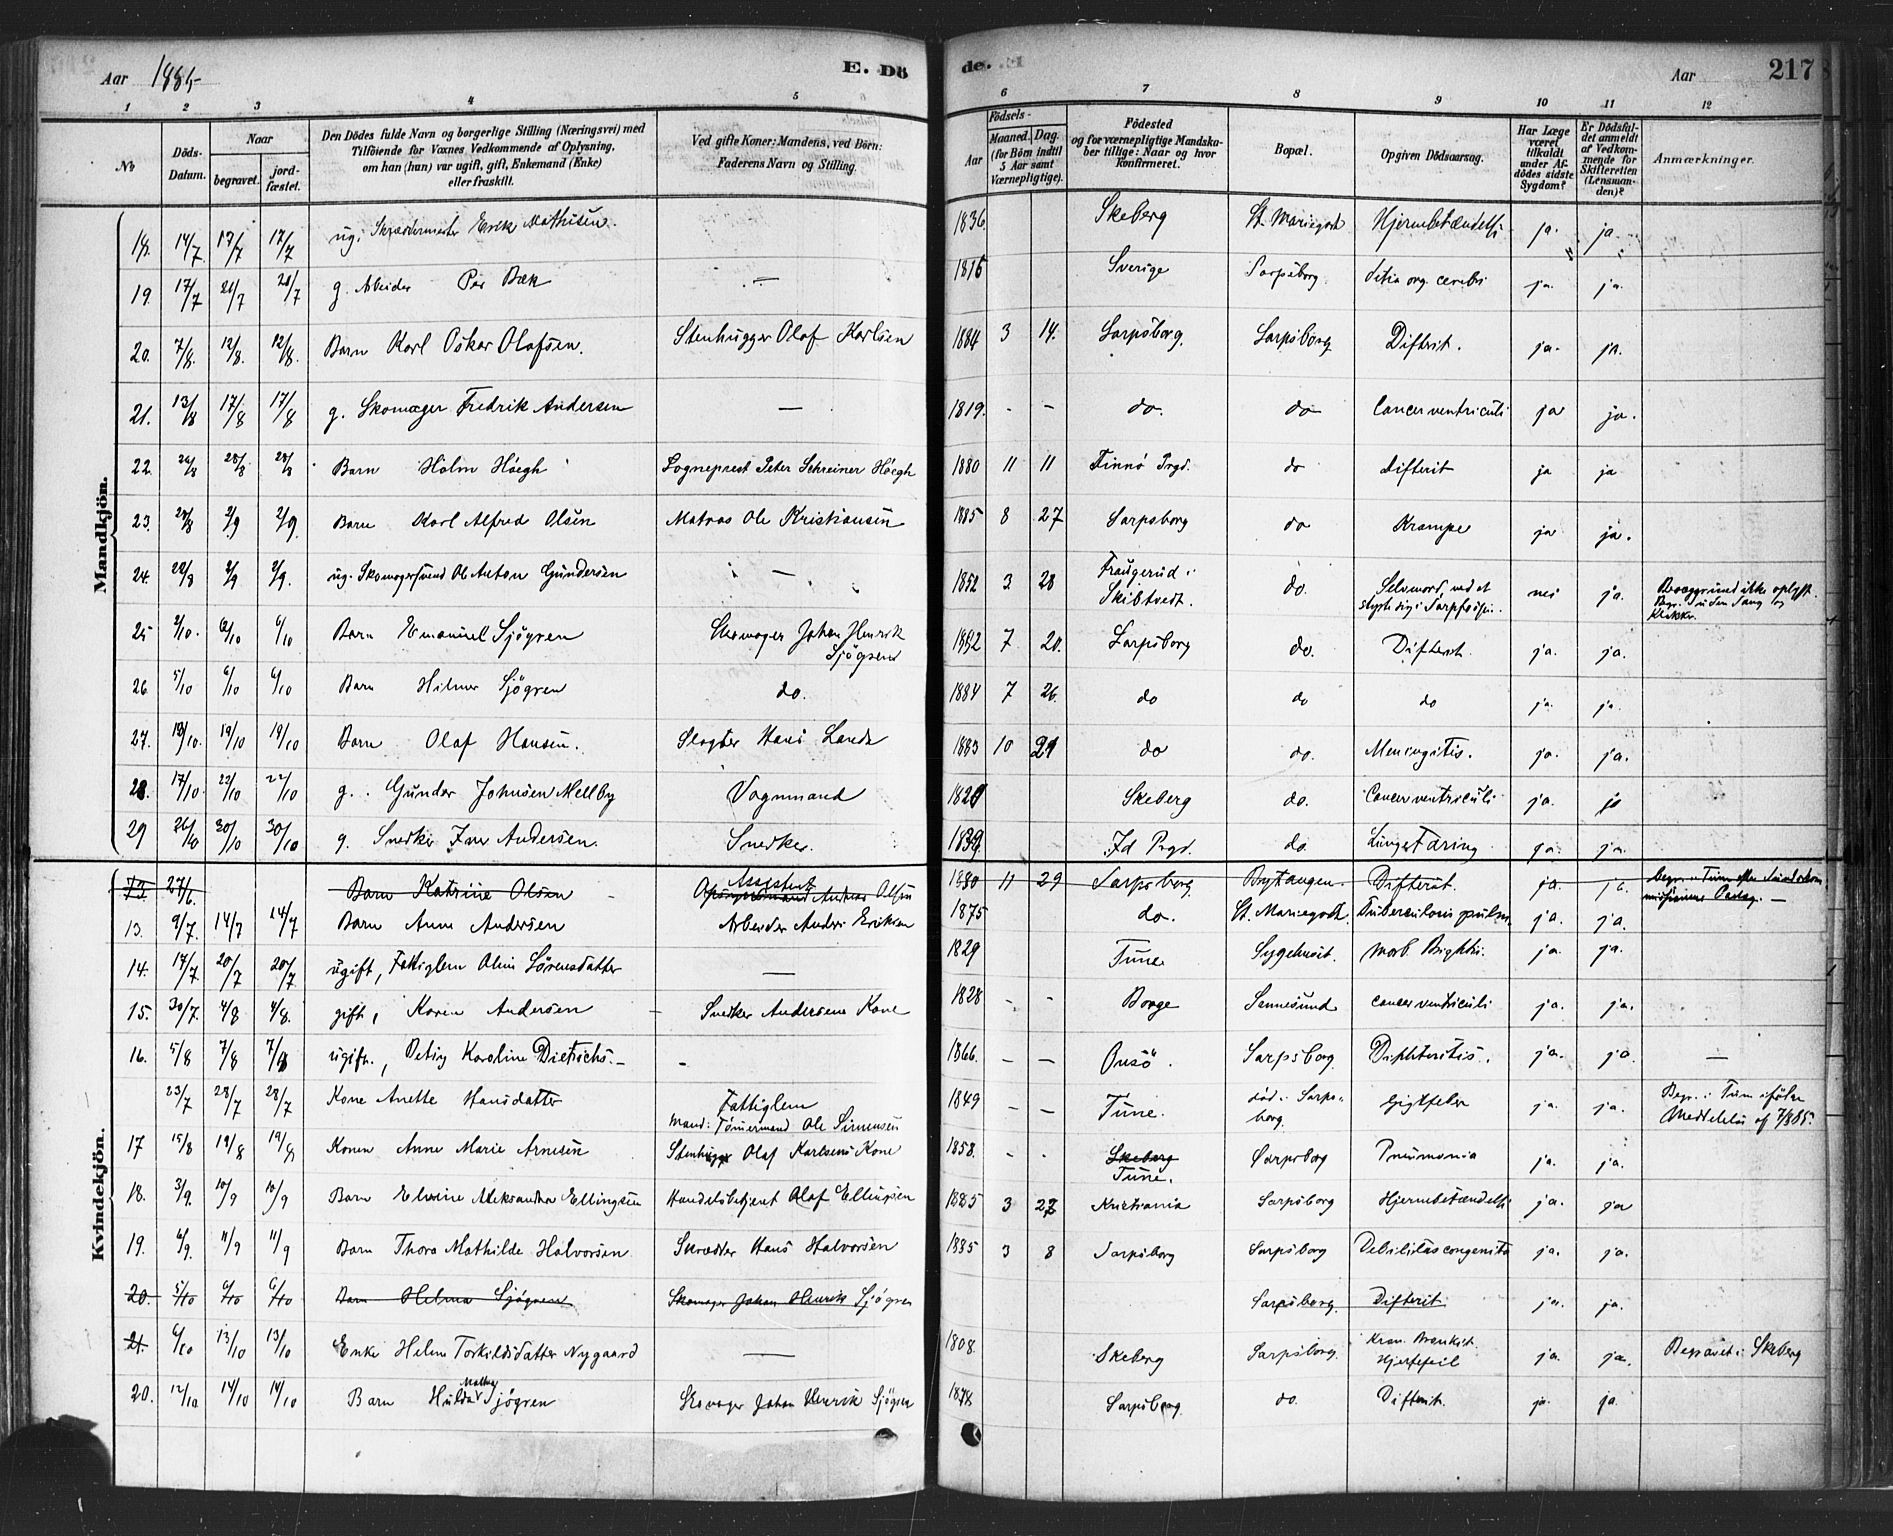 Aar 1885 E. Dö de. Aar 217
1 2 3 4 5 6 7 8 9 10 11 12
No Döds-Datum. Naar begravet. jord-fæstet. Den Dödes fulde Navn og borgerlige Stilling (Næringsvei) med Tilföiende for Voxnes Vedkommende af Oplysning, om han (hun) var ugift, gift, Enkemand (Enke) eller fraskilt. Ved gifte Koner: Mandens, ved Börn: Faderens Navn og Stilling. Födsels- Aar Maaned. Dag. (for Börn indtil 5 Aar samt Værnepligtige). Födested og for værnepligtige Mandskaber tillige: Naar og hvor Konfirmeret. Bopæl. Opgiven Dödsaarsag. Har Læge været tilkaldt under Afdödes sidste Sygdom? Er Dödsfaldet anmeldt af Vedkommende for Skifteretten (Lensmanden)? Anmærkninger.
Mandkjön.
18. 14/7 17/7 17/7 ug. Skrædermester Erik Mathisen. 1836 Skeberg St. Mariegade Hjernebetændelse ja. ja.
19. 17/7 21/7 21/7 g. Arbeider Per Bæk — 1815 Sverige Sarpsborg org. cerebri ja. ja.
20. 7/8. 12/8. 12/8. Barn Karl Oskar Olafsen. Stenhugger Olaf Karlsen 1884 3 14. Sarpsborg. Sarpsborg Difterit. ja. ja.
21. 13/8 17/8 17/8 g. Skomager Fredrik Andersen — 1819. - - do. do Cancer ventriculi ja ja.
22. 26/8 28/8 28/8 Barn Holm Høegh Sogneprest Peter Schreiner Høegh 1880 11 11 Finnö Prgd. do Difterit ja ja
23. 28/8 2/9 2/9 Barn Karl Alfred Olsen Matros Ole Kristiansen 1885 8 27 Sarpsborg do Krampe ja ja.
24. 22/8 2/9 2/9. ug. Skomagersvend Ole Anton Gundersen — 1852 3 28 Skibtvedt. do. Selvmord, ved at styrte dig i Sarpfossen. nei ja. Bevæggrund ikke oplyst. Begr. uden Sang og Klokker.
25 2/10. 6/10 6/10 Barn Emanuel Sjögren Skomager Johan Henrik Sjögren 1882 7 20. Sarpsborg do. Difterit. ja. ja.
26. 5/10 6/10 6/10 Barn Hilmer Sjögren do. 1884 7 26. do do do ja. ja.
27. 18/10. 19/10 19/10 Barn Olaf Hansen. Slagter Hans Lande 1883 10 21 do do. Meningitis. ja. ja.
28. 17/10. 22/10 22/10 g. Gunder Johnsen Mellby Vognmand 1820 Skeberg do. Cancer ventriculi ja. ja
29 26/10 30/10 30/10 g. Snedker Iver Andersen. Snedker. 1839 Id Prgd. do. Lungetæring ja. ja.
Kvindekjön.
13. 27/6. Barn Katrine Olsen Assistent Andreas Olsen 1880 11 29 Sarpsborg Brytangen Difterit. ja. ja.
13. 9/7. 14/7 14/7 Barn Anna Andersen Arbeider Anders Eriksen 1875 do. St. Mariegade. Tuberculosis pulm. ja. ja.
14. 17/7. 20/7 20/7 ugift, Fattiglem Oline Sörensdatter — 1829 Tune Sygehuset. Morb. Brightii. ja. ja.
15. 30/7. 4/8 4/8. gift, Karen Andersen — Snedker Andersens Kone 1828 - - Borge Sannesund cancer ventriculi ja. ja.
16. 5/8 7/8 7/8 ugift., Betsy Karoline Dietrichs. - 1866. — — Onsö. Sarpsborg Diphteritis. ja. ja. —
23/7 28/7 28/7 Kone Anette Hansdatter Fattiglem Mand: Tömermand Ole Simensen 1849 — — Tune. död i Sarpsborg. Gigtfeber ja. ja. Begr. i Tune ifölge Meddelelse af 7/8 85.
17 15/8 19/8 19/8 Konen Anne Marie Arnesen Stenhugger Olaf Karlsens Kone 1858. - - Skeberg Tune. Sarpsborg Pneumonia ja. ja.
18. 3/9. 10/9 10/9 Barn Elvine Aleksandra Ellingsen Handelsbetjent Olaf Ellingsen 1885 3 27 Kristiania Sarpsborg Hjernebetændelse ja. ja
19. 6/9. 11/9 11/9 Barn Thora Mathilde Halvorsen Skrædder Hans Halvorsen 1885 3 8 Sarpsborg Sarpsborg Debilitas congenita ja. ja.
20. 5/10 6/10 6/10 Barn Helma Sjögren Skomager Johan Henrik Sjögren Sarpsborg. Difterit ja. ja.
21. 6/10 13/10 13/10 Enke Helene Torkildsdatter Nygaard — 1808. Skeberg Sarpsborg. Kron. Bronkit. Hjertefeil ja. ja. Begravet i Skeberg
20. 12/10 14/10 14/10 Barn Hulda Sjögren Skomager Johan Henrik Sjögren 1878 Sarpsborg. do. Difterit. ja. ja.